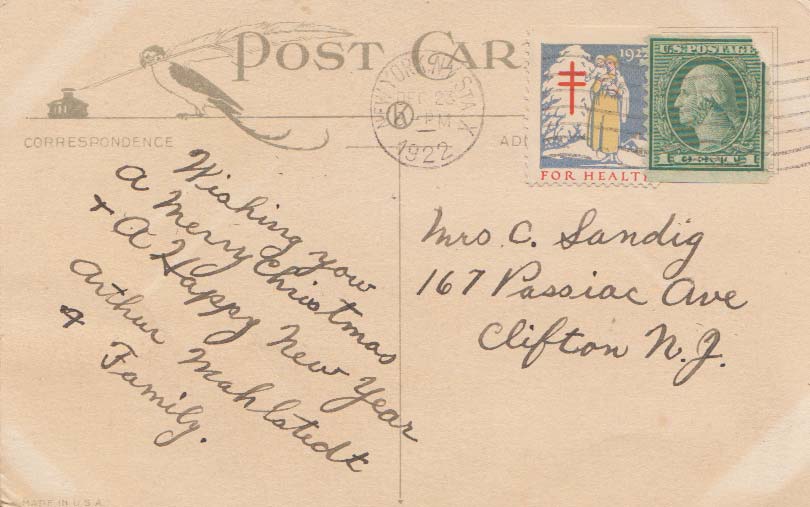 POST CAR
CORRESPONDENCE
NEW YORK, N.Y. STA. X
DEC 23
PM
K
1922
192
FOR HEALT
U.S. POSTAGE
1 1
Wishing you
a merry Christmas
+ A Happy New Year
Arthur Mahlstedt
+ Family.
Mrs C. Sandig
167 Passiac Ave
Clifton N.J.
MADE IN U.S.A.